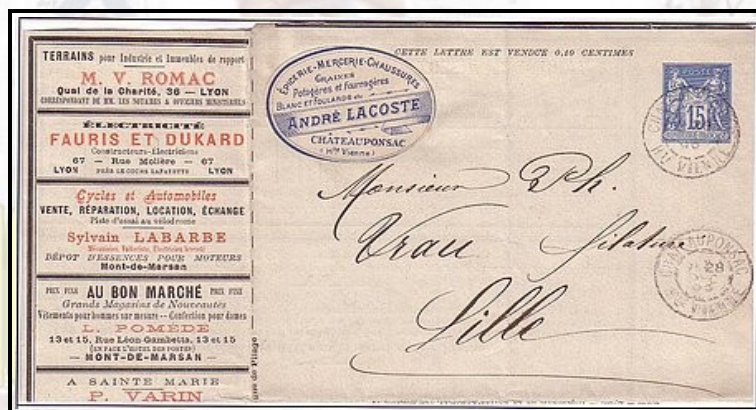 TERRAINS pour Industrie et Immeubles de rapport
M. V. ROMAC
Quai de la Charité, 36 — LYON
CORRESPONDANT DE MM. LES NOTAIRES & OFFICIERS MINISTERIELS
ÉLECTRICITÉ
FAURIS ET DUKARD
Constructeurs-Electriciens
67 — Rue Molière — 67
LYON PRÈS LE COURS LAFAYETTE LYON
Cycles et Automobiles
VENTE, RÉPARATION, LOCATION, ÉCHANGE
Piste d'essai au vélodrome
Sylvain LABARBE
DÉPOT D'ESSENCES POUR MOTEURS
Mont-de-Marsan
PRIX FIXE AU BON MARCHÉ PRIX FIXE
Grands Magasins de Nouveautés
Vêtements pour hommes sur mesure — Confection pour dames
L. POMÈDE
13 et 15, Rue Léon-Gambetta, 13 et 15
(EN FACE L'HOTEL DES POSTES)
— MONT-DE-MARSAN —
A SAINTE MARIE
P. VARIN
de Pliage
CETTE LETTRE EST VENDUE 0,10 CENTIMES
ÉPICERIE-MERCERIE-CHAUSSURES
GRAINES
Potagères et Fourragères
BLANC ET FOULARDS
ANDRÉ LACOSTE
CHÂTEAUPONSAC
(Hte Vienne)
POSTE
15
Monsieur Ph.
Vrau filature
Lille
CHATEAUPONSAC
28